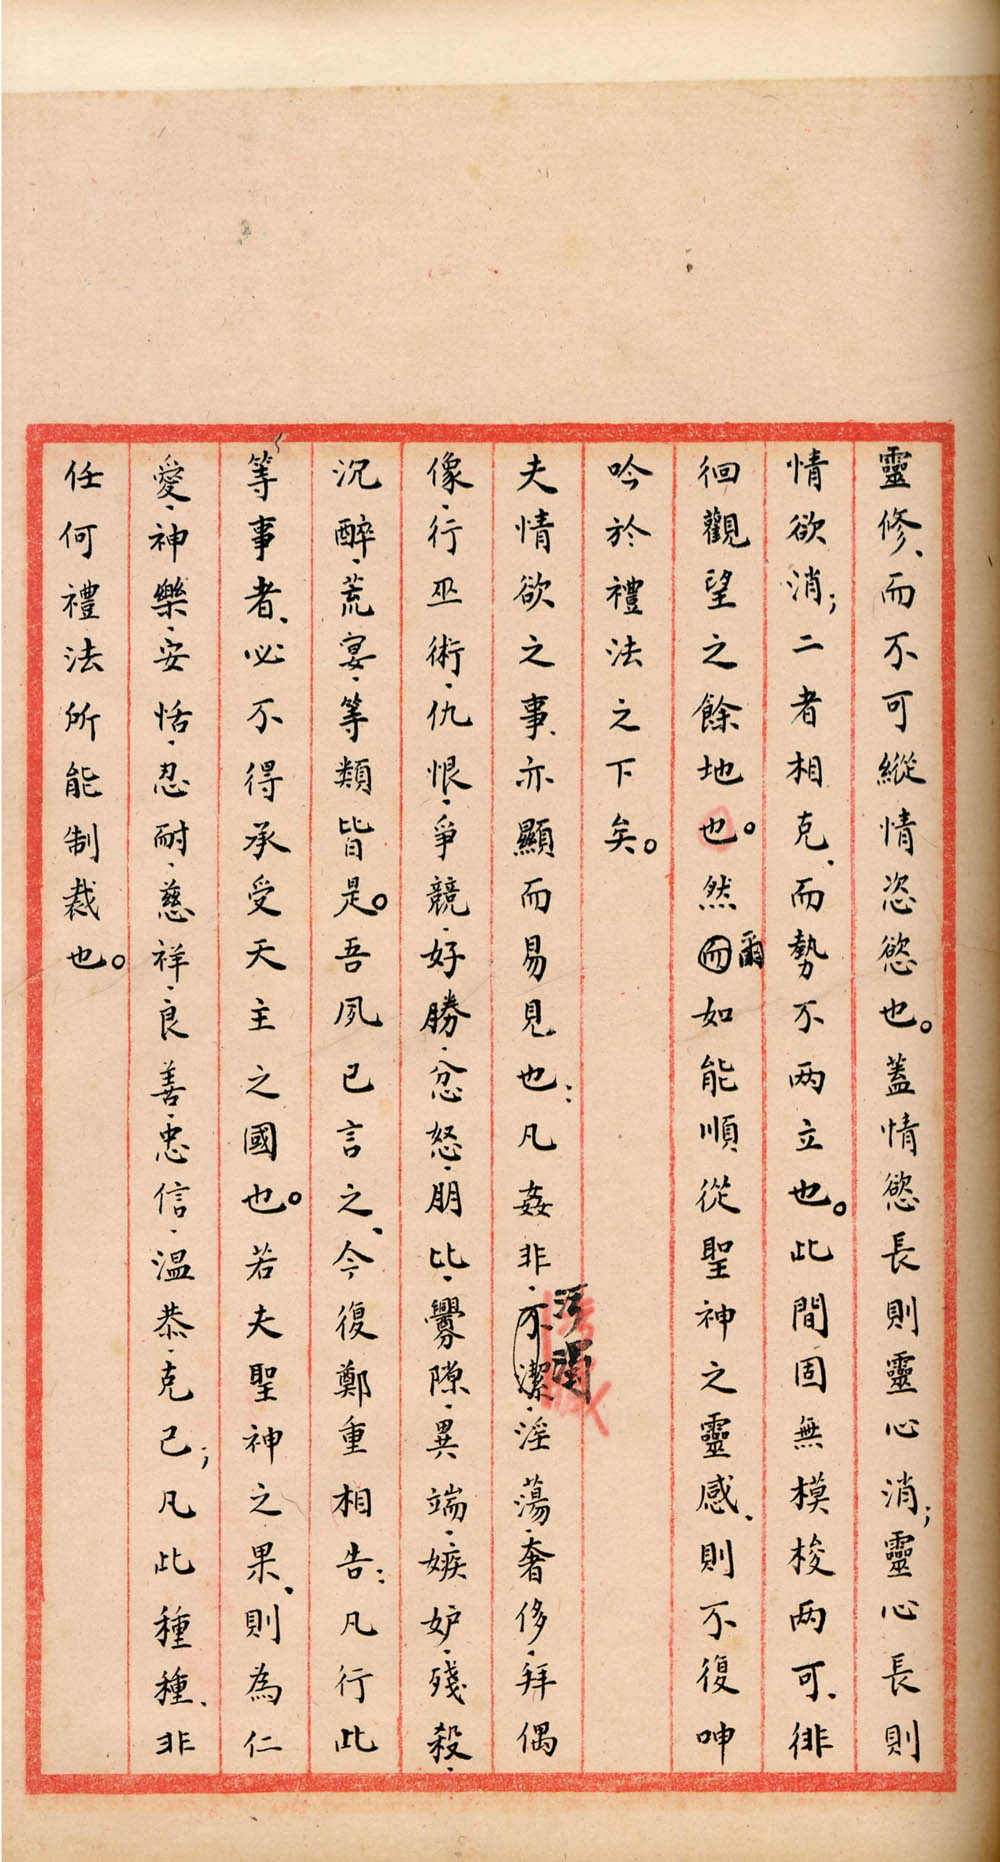 靈修、而不可縱情恣慾也。蓋情慾長則靈心消；靈心長則
情欲消；二者相克、而勢不两立也。此間固無模棱两可、徘
徊觀望之餘地也。然而爾如能順從聖神之靈感、則不復呻
吟於禮法之下矣。
夫情欲之事、亦顯而易見也：凡姦非、不潔污濁、淫蕩、奢侈、拜偶
像、行巫術、仇恨、爭競、好勝、忿怒、朋比、釁隙、異端、嫉妒、殘殺、
沉醉、荒宴、等類皆是。吾夙已言之、今復鄭重相告：凡行此
等事者、必不得承受天主之國也。若夫聖神之果、則為仁
愛、神樂、安恬、忍耐、慈祥、良善、忠信、溫恭、克己；凡此種種、非
任何禮法所能制裁也。